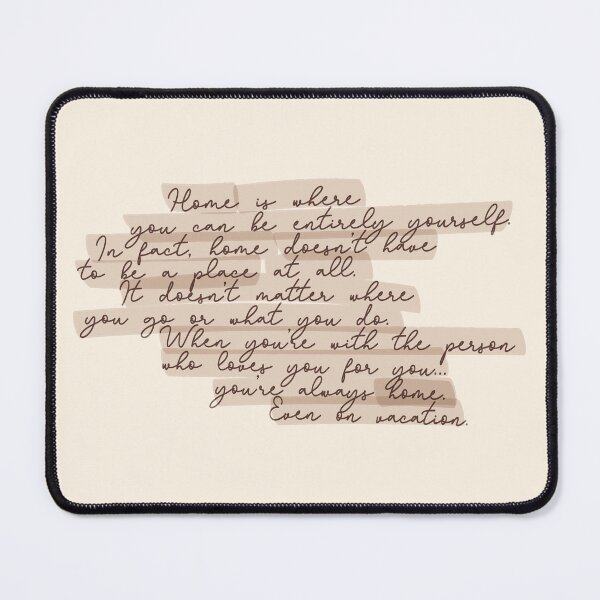 Home is where
you can be entirely yourself.
In fact, home doesn't have
to be a place at all.
It doesn't matter where
you go or what you do.
When you're with the person
who loves you for you...
you're always home.
Even on vacation.